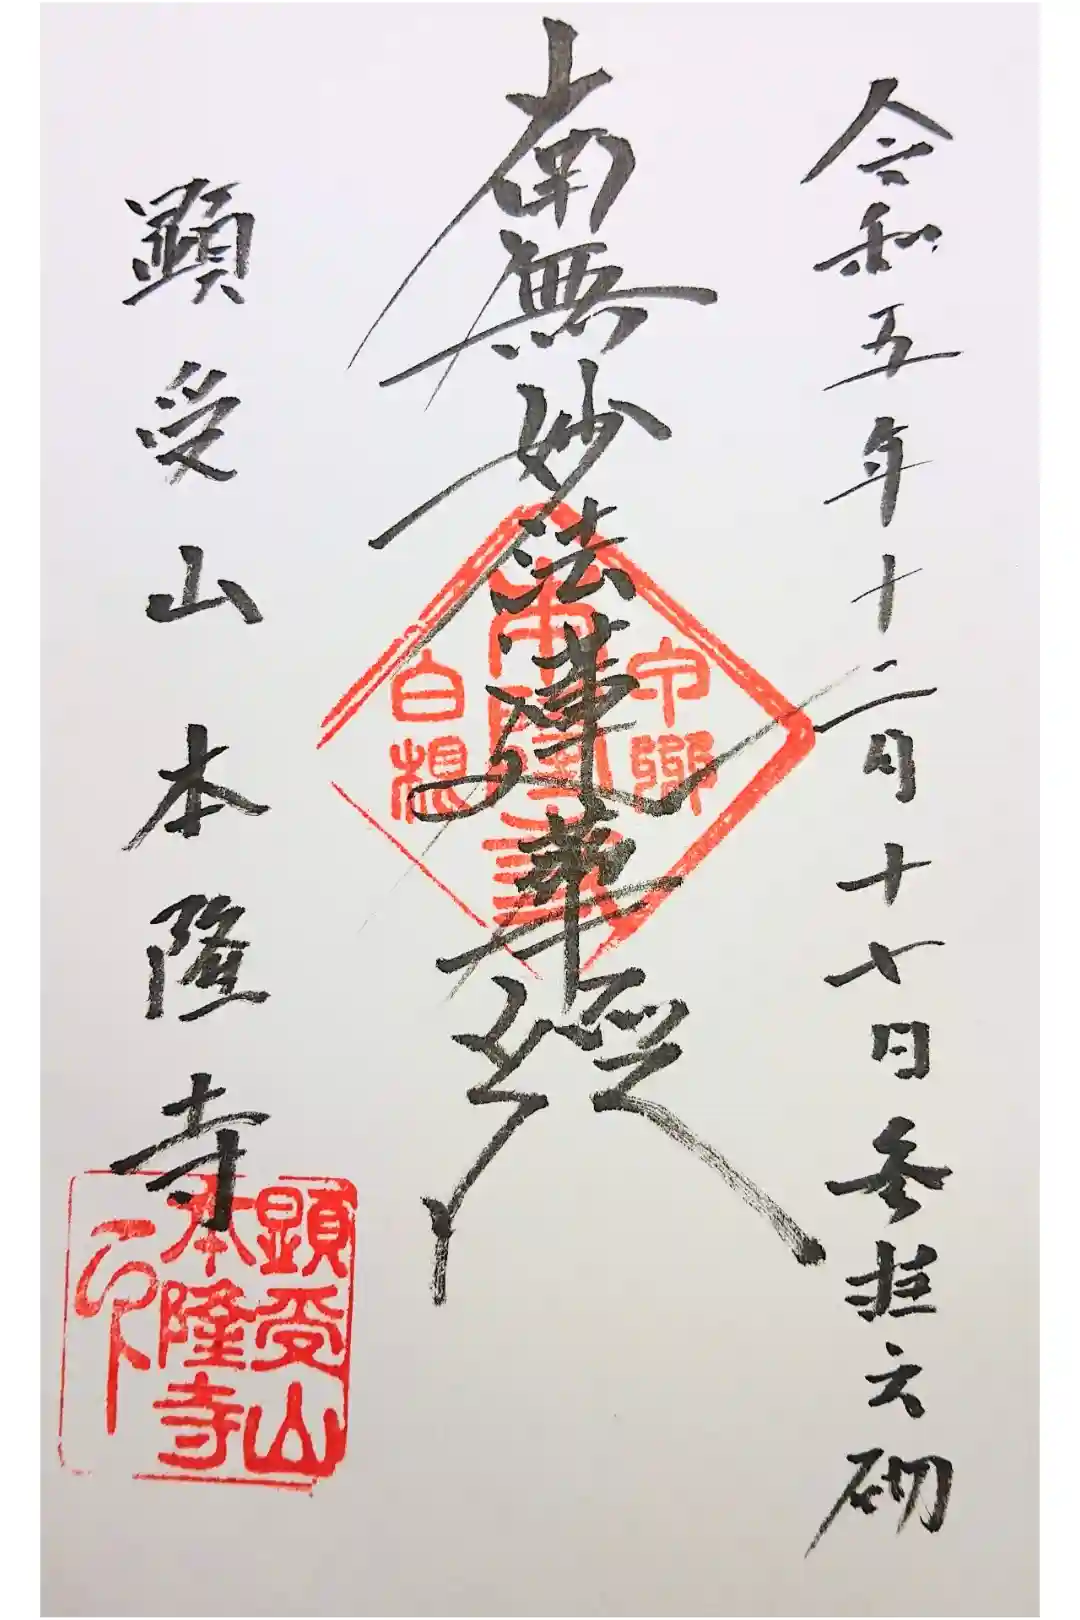 令和五年十二月十七日参拝之砌
南無妙法蓮華經
顕受山本隆寺
本隆寺
顕受山
本隆寺
印